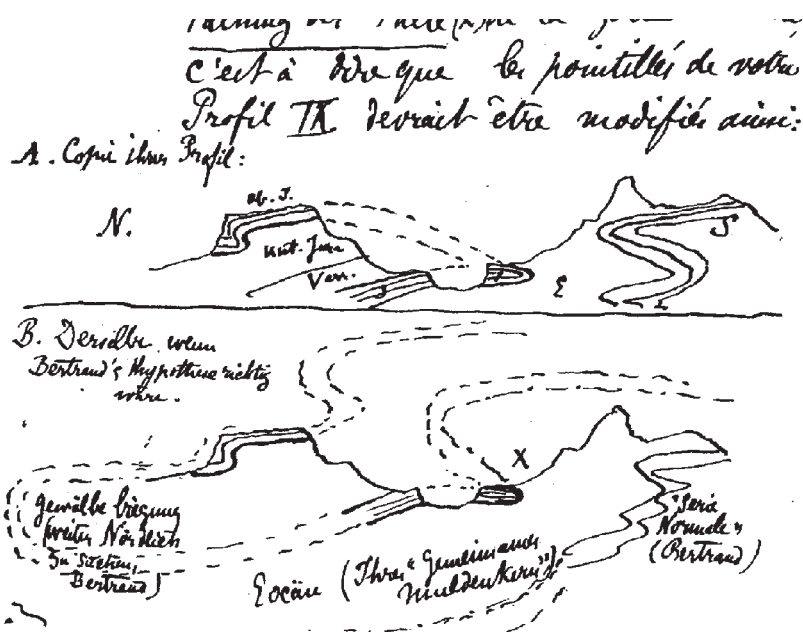 c'est à dire que les pointillés de votre
Profil IX devrait être modifiés ainsi:
A. Copie ihres Profil:
N.
ob. J.
unt. Jura
Verr.
E
S
B. Derselbe wenn
Bertrand's Hypothese richtig
wäre.
X
Gewölbebiegung
weiter Nördlich
zu suchen,
Bertrand)
Eocän (Ihres "Gemeinsamer
Muldenkern")
"Serie
Normale"
(Bertrand)